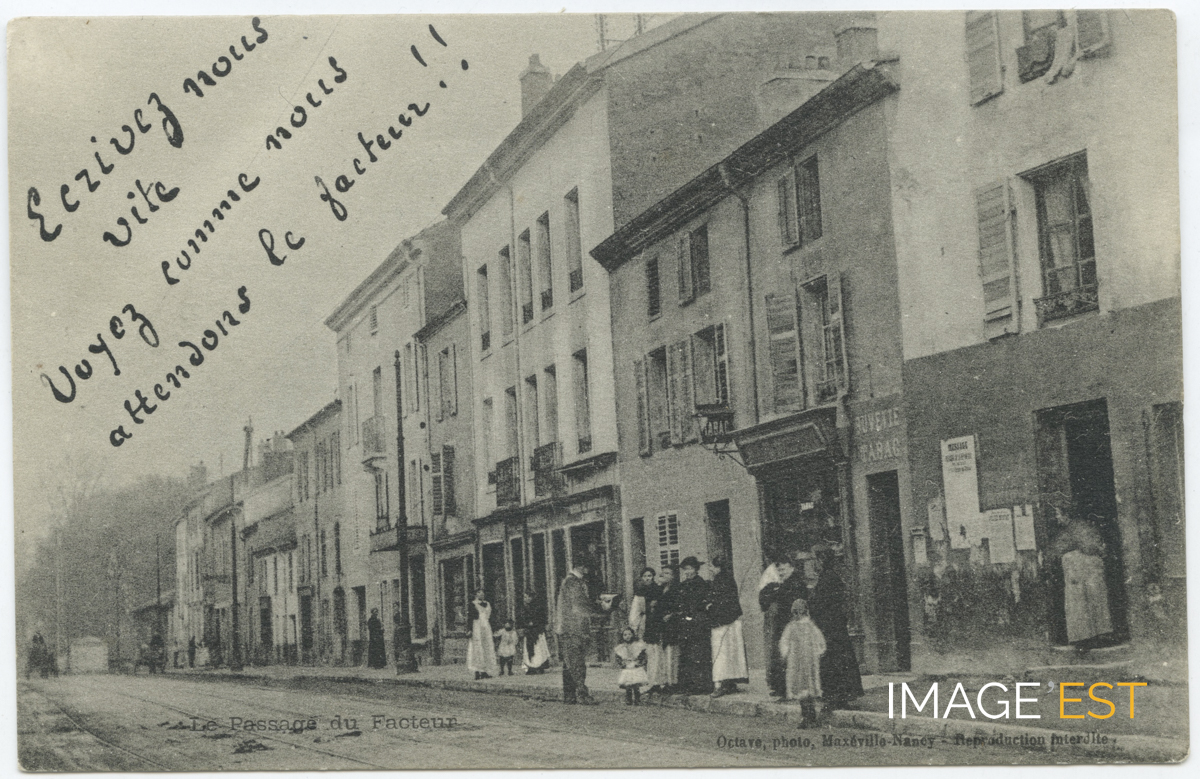 Ecrivez nous
vite
Voyez comme nous
attendons le facteur!!
TABAC
BUVETTE
TABAC
Le Passage du Facteur
Octave, photo, Maxéville-Nancy - Reproduction interdite.
IMAGE EST